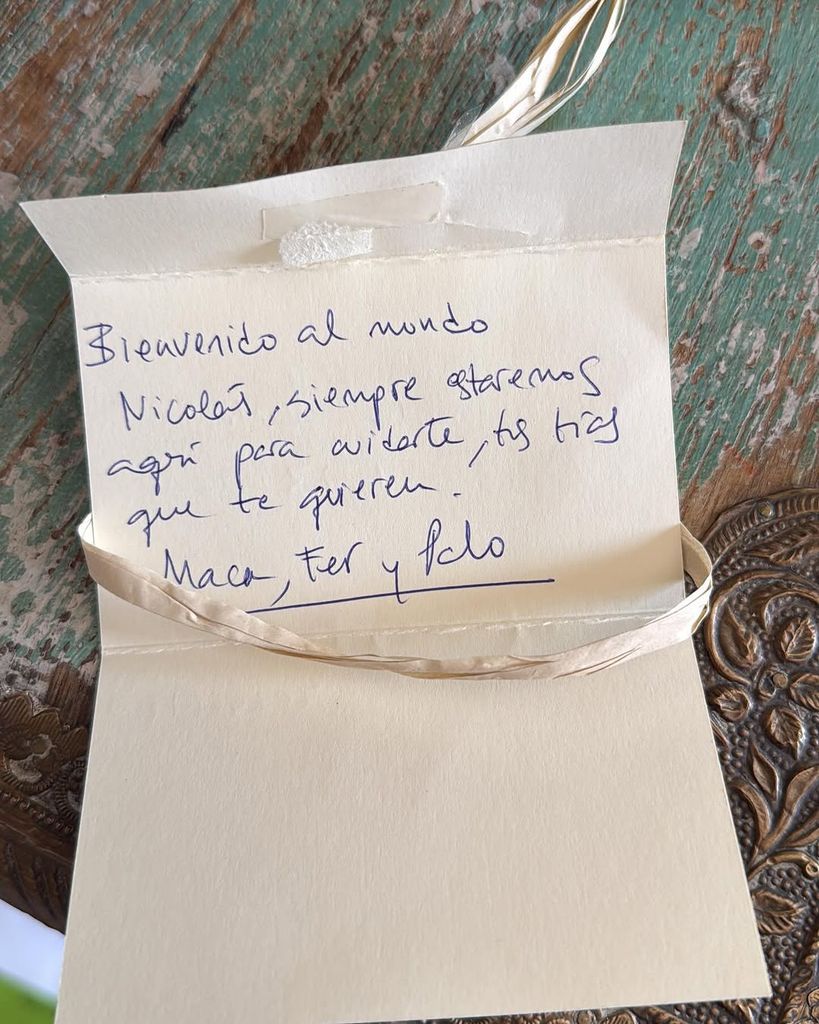 Bienvenido al mundo
Nicolás, siempre estaremos
aquí para cuidarte, tus tíos
que te quieren.
Maca, Fer y Palo